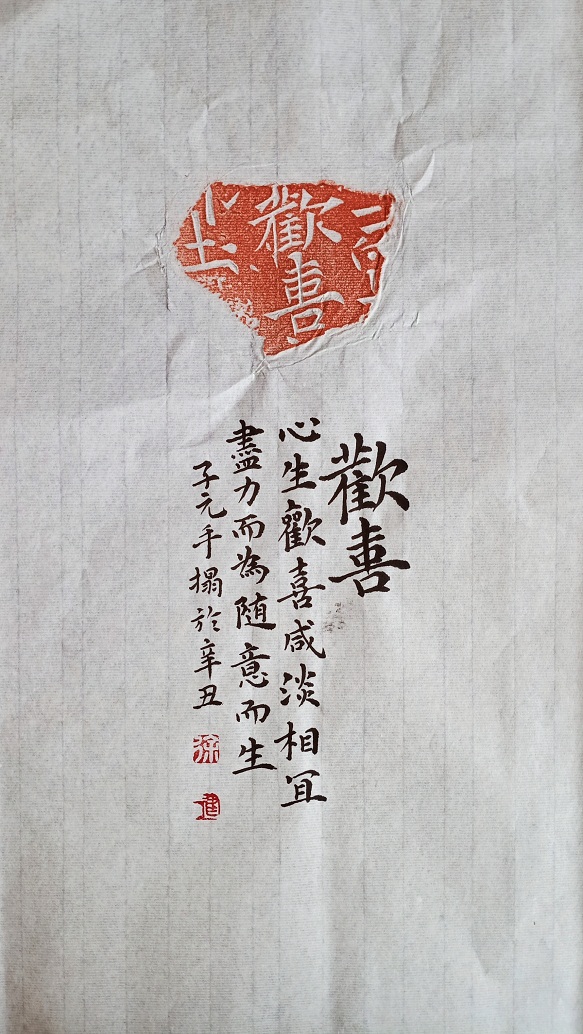 歡喜
歡喜
心生歡喜咸淡相宜
盡力而為随意而生
子元手搨於辛丑
徐
進